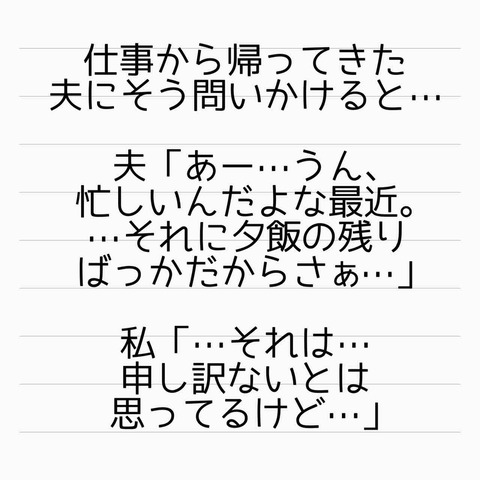 仕事から帰ってきた
夫にそう問いかけると…
夫「あー…うん、
忙しいんだよな最近。
…それに夕飯の残り
ばっかだからさぁ…」
私「…それは…
申し訳ないとは
思ってるけど…」